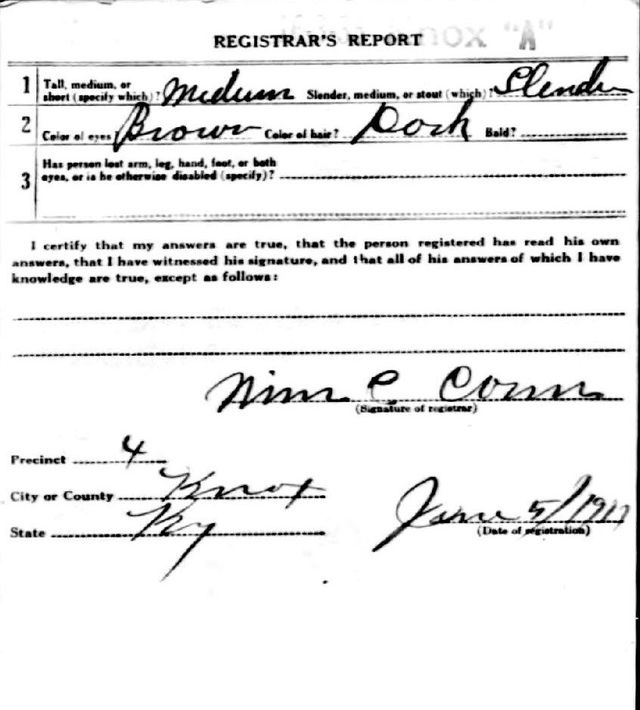 REGISTRAR'S REPORT "A"
1 Tall, medium, or short (specify which)? Medium Slender, medium, or stout (which)? Slender
2 Color of eyes Brown Color of hair? Dark Bald?
3 Has person lost arm, leg, hand, foot, or both
eyes, or is he otherwise disabled (specify)?
I certify that my answers are true, that the person registered has read his own
answers, that I have witnessed his signature, and that all of his answers of which I have
knowledge are true, except as follows:
(Signature of registrar)
Precinct 4
City or County Knox
State Ky
June 5/1917
(Date of registration)